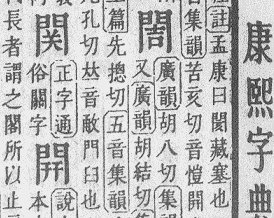 康熙字典
註孟康曰閡藏塞也
音集韻苦亥切音愷開
廣韻胡八切集
又廣韻胡結切
篇先摠切五音集韻
孔切𠀤音敵門臼也
関
正字通
俗關字
開
說
本
長者謂之閣所以止